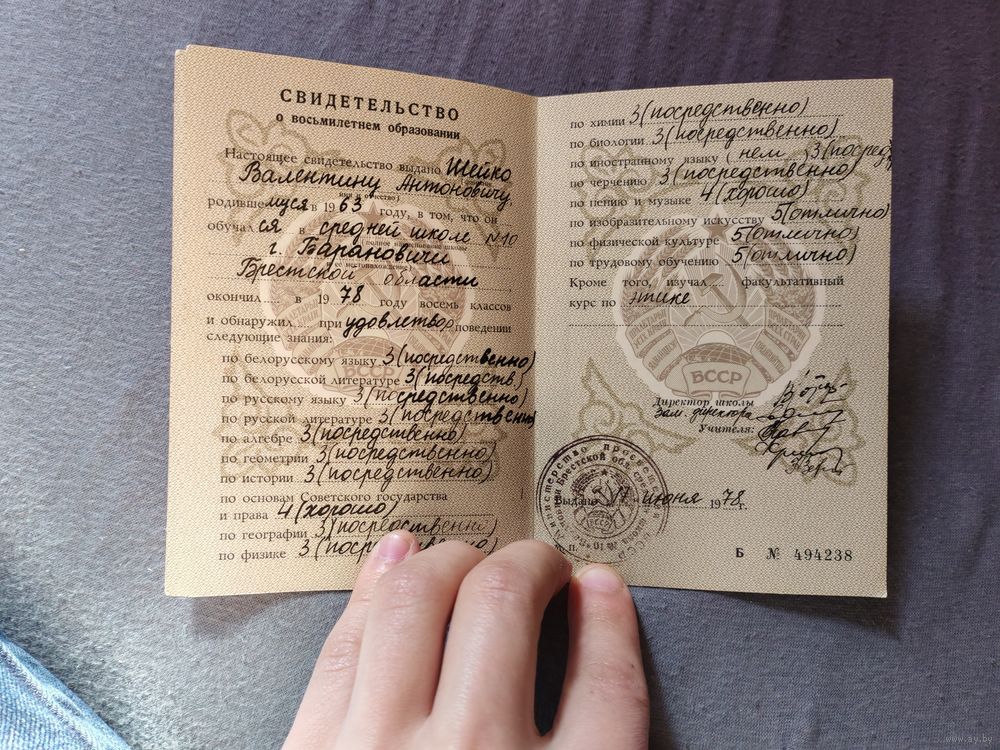 СВИДЕТЕЛЬСТВО
о восьмилетнем образовании
Настоящее свидетельство выдано Шейко
Валентину Антоновичу,
родившемуся в 1963 году, в том, что он
обучался в средней школе №10
г. Барановичи
Брестской области
окончил в 1978 году восемь классов
и обнаружил при удовлетвор. поведении
следующие знания:
по белорусскому языку 3 (посредственно)
по белорусской литературе 3 (посредств.)
по русскому языку 3 (посредственно)
по русской литературе 3 (посредственн
по алгебре 3 (посредственно)
по геометрии 3 (посредственно)
по истории 3 (посредственно)
по основам Советского государства
и права 4 (хорошо)
по географии 3 (посредственно)
по физике 3 (поср
по химии 3 (посредственно)
по биологии 3 (посредственно)
по иностранному языку (нем 3 (посред
по черчению 3 (посредственно)
по пению и музыке 4 (хорошо)
по изобразительному искусству 5 (отлично)
по физической культуре 5 (отлично)
по трудовому обучению 5 (отлично)
Кроме того, изучал факультативный
курс по этике
БССР
БССР
Директор школы
Зам. директора
Учителя:
Выдано 17 июня 1978 г.
Б № 494238
www.ay.by